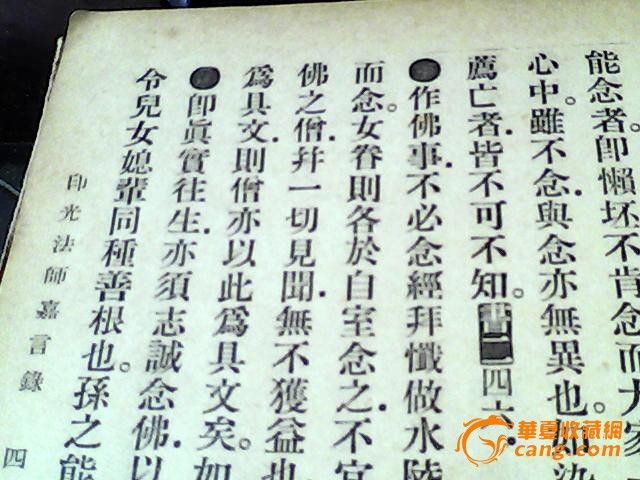 能念者。卽懶坯不肯念而大家
心中。雖不念。與念亦無異也。如染
薦亡者。皆不可不知。書二四六
●作佛事。不必念經拜懺做水陸
而念。女眷則各於自室念之。不宜
佛之僧。幷一切見聞。無不獲益也
爲具文。則僧亦以此爲具文矣。如
●卽眞實往生。亦須志誠念佛。以
令兒女媳輩同種善根也。孫之能
印光法師嘉言錄
四
華夏收藏网
cang.com